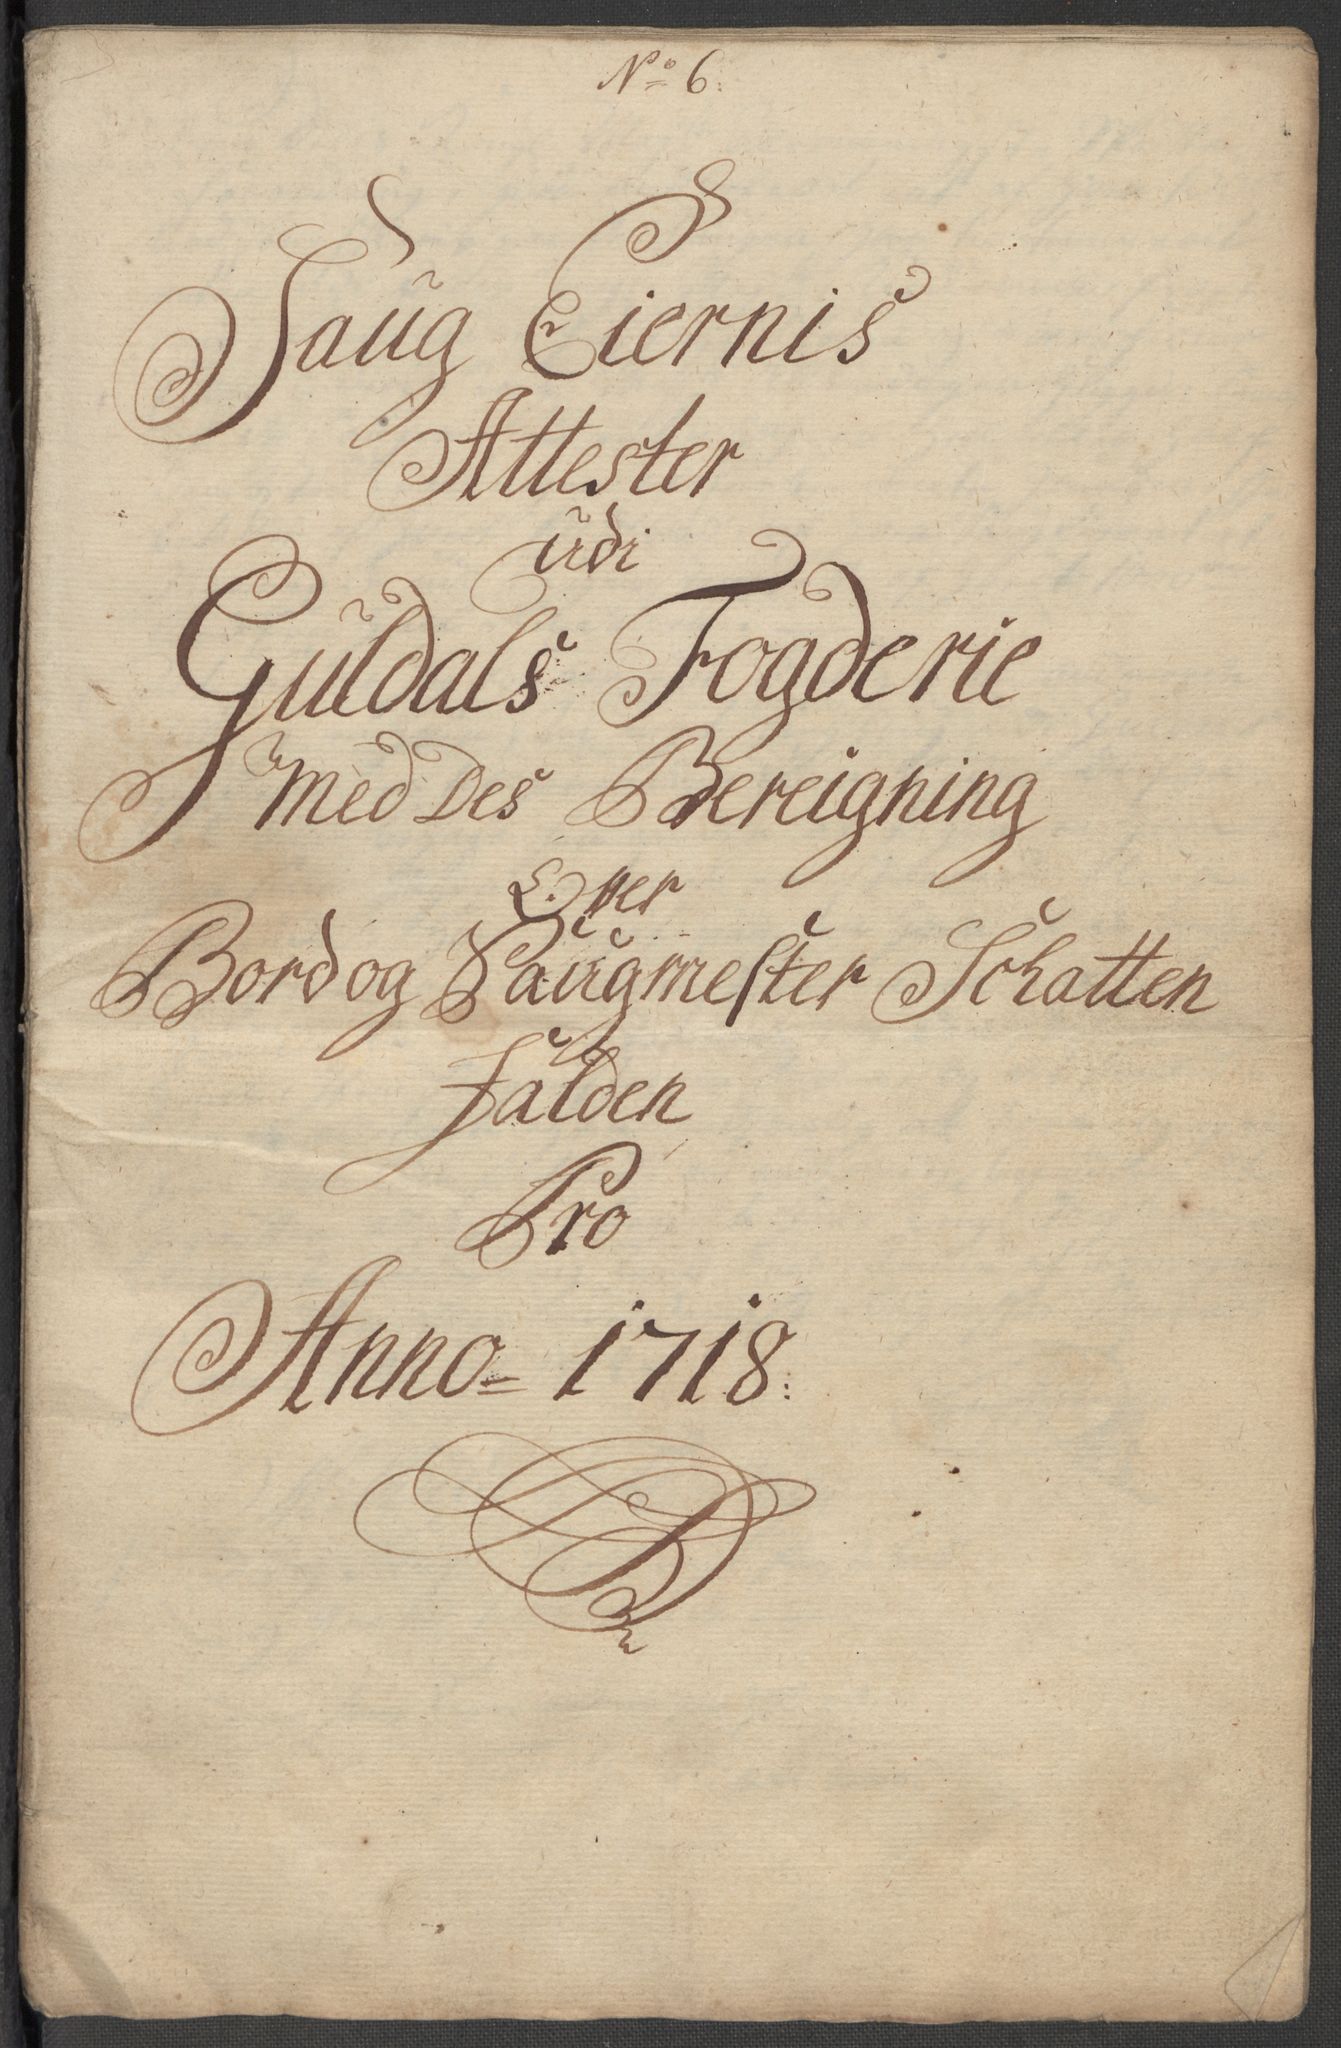 No 6.
Saug Eiernis
Attester
udi
Guldals Fogderie
med Des Bereigning
Over
Bord og Saugmester Schatten
falden
Pro
Anno 1718.